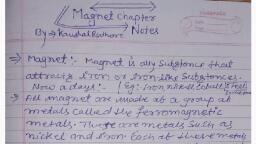 Magnet Chapter
Notes
By → Kaushal Rathore
⇒ Magnet :- Magnet is any Substance that
attracts iron or iron-like Substances.
Now a days :- (eg: Iron, nickel, cobalt, Steel
→ All magnet are made of a group of
metals called the ferromagnetic
metals. These are metals such as
nickel and iron. Each of these metals